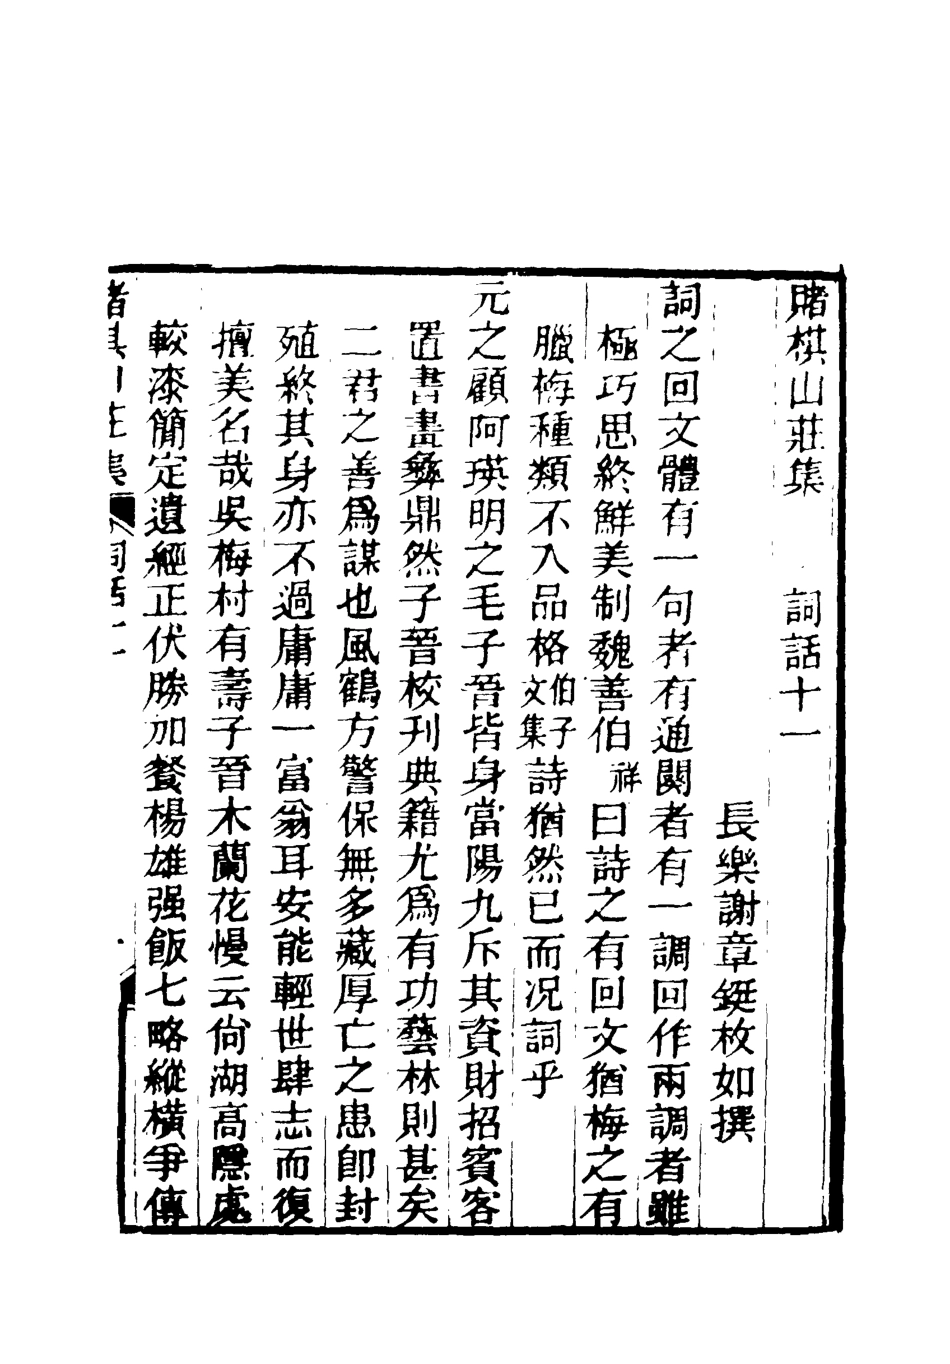 賭棋山莊集　詞話十一
長樂謝章鋌枚如撰
詞之回文體有一句者有通闋者有一調回作兩調者雖
極巧思終鮮美制魏善伯祥曰詩之有回文猶梅之有
臘梅種類不入品格伯子文集詩猶然已而况詞乎
元之顧阿瑛明之毛子晉皆身當陽九斥其資財招賓客
置書畫彝鼎然子晉校刊典籍尤爲有功藝林則甚矣
二君之善爲謀也風鶴方警保無多藏厚亡之患卽封
殖終其身亦不過庸庸一富翁耳安能輕世肆志而復
擅美名哉吳梅村有壽子晉木蘭花慢云尙湖高隱處
較漆簡定遺經正伏勝加餐楊雄强飯七略縱橫爭傳
賭棋山莊集　詞話十一